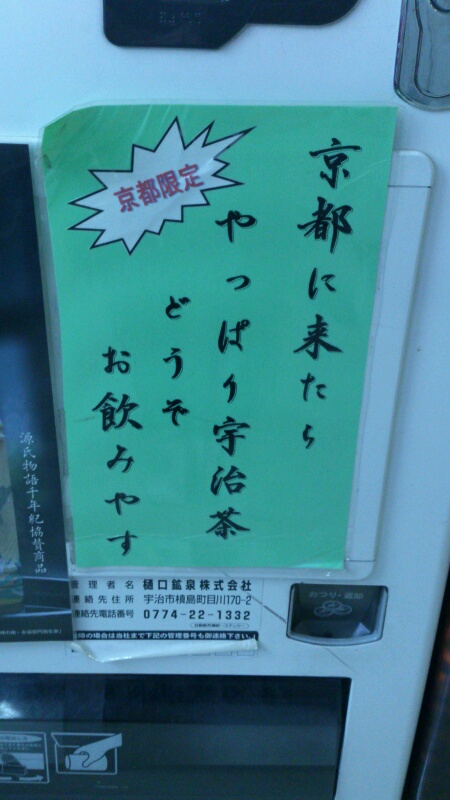 京都限定
京都に来たら
やっぱり宇治茶
どうぞ
お飲みやす
源氏物語千年紀協賛商品
管理者名 樋口鉱泉株式会社
連絡先住所 宇治市槙島町目川170-2
連絡先電話番号 0774-22-1332
の場合は当社まで下記の管理番号も御連絡下さい。
おつり・返却